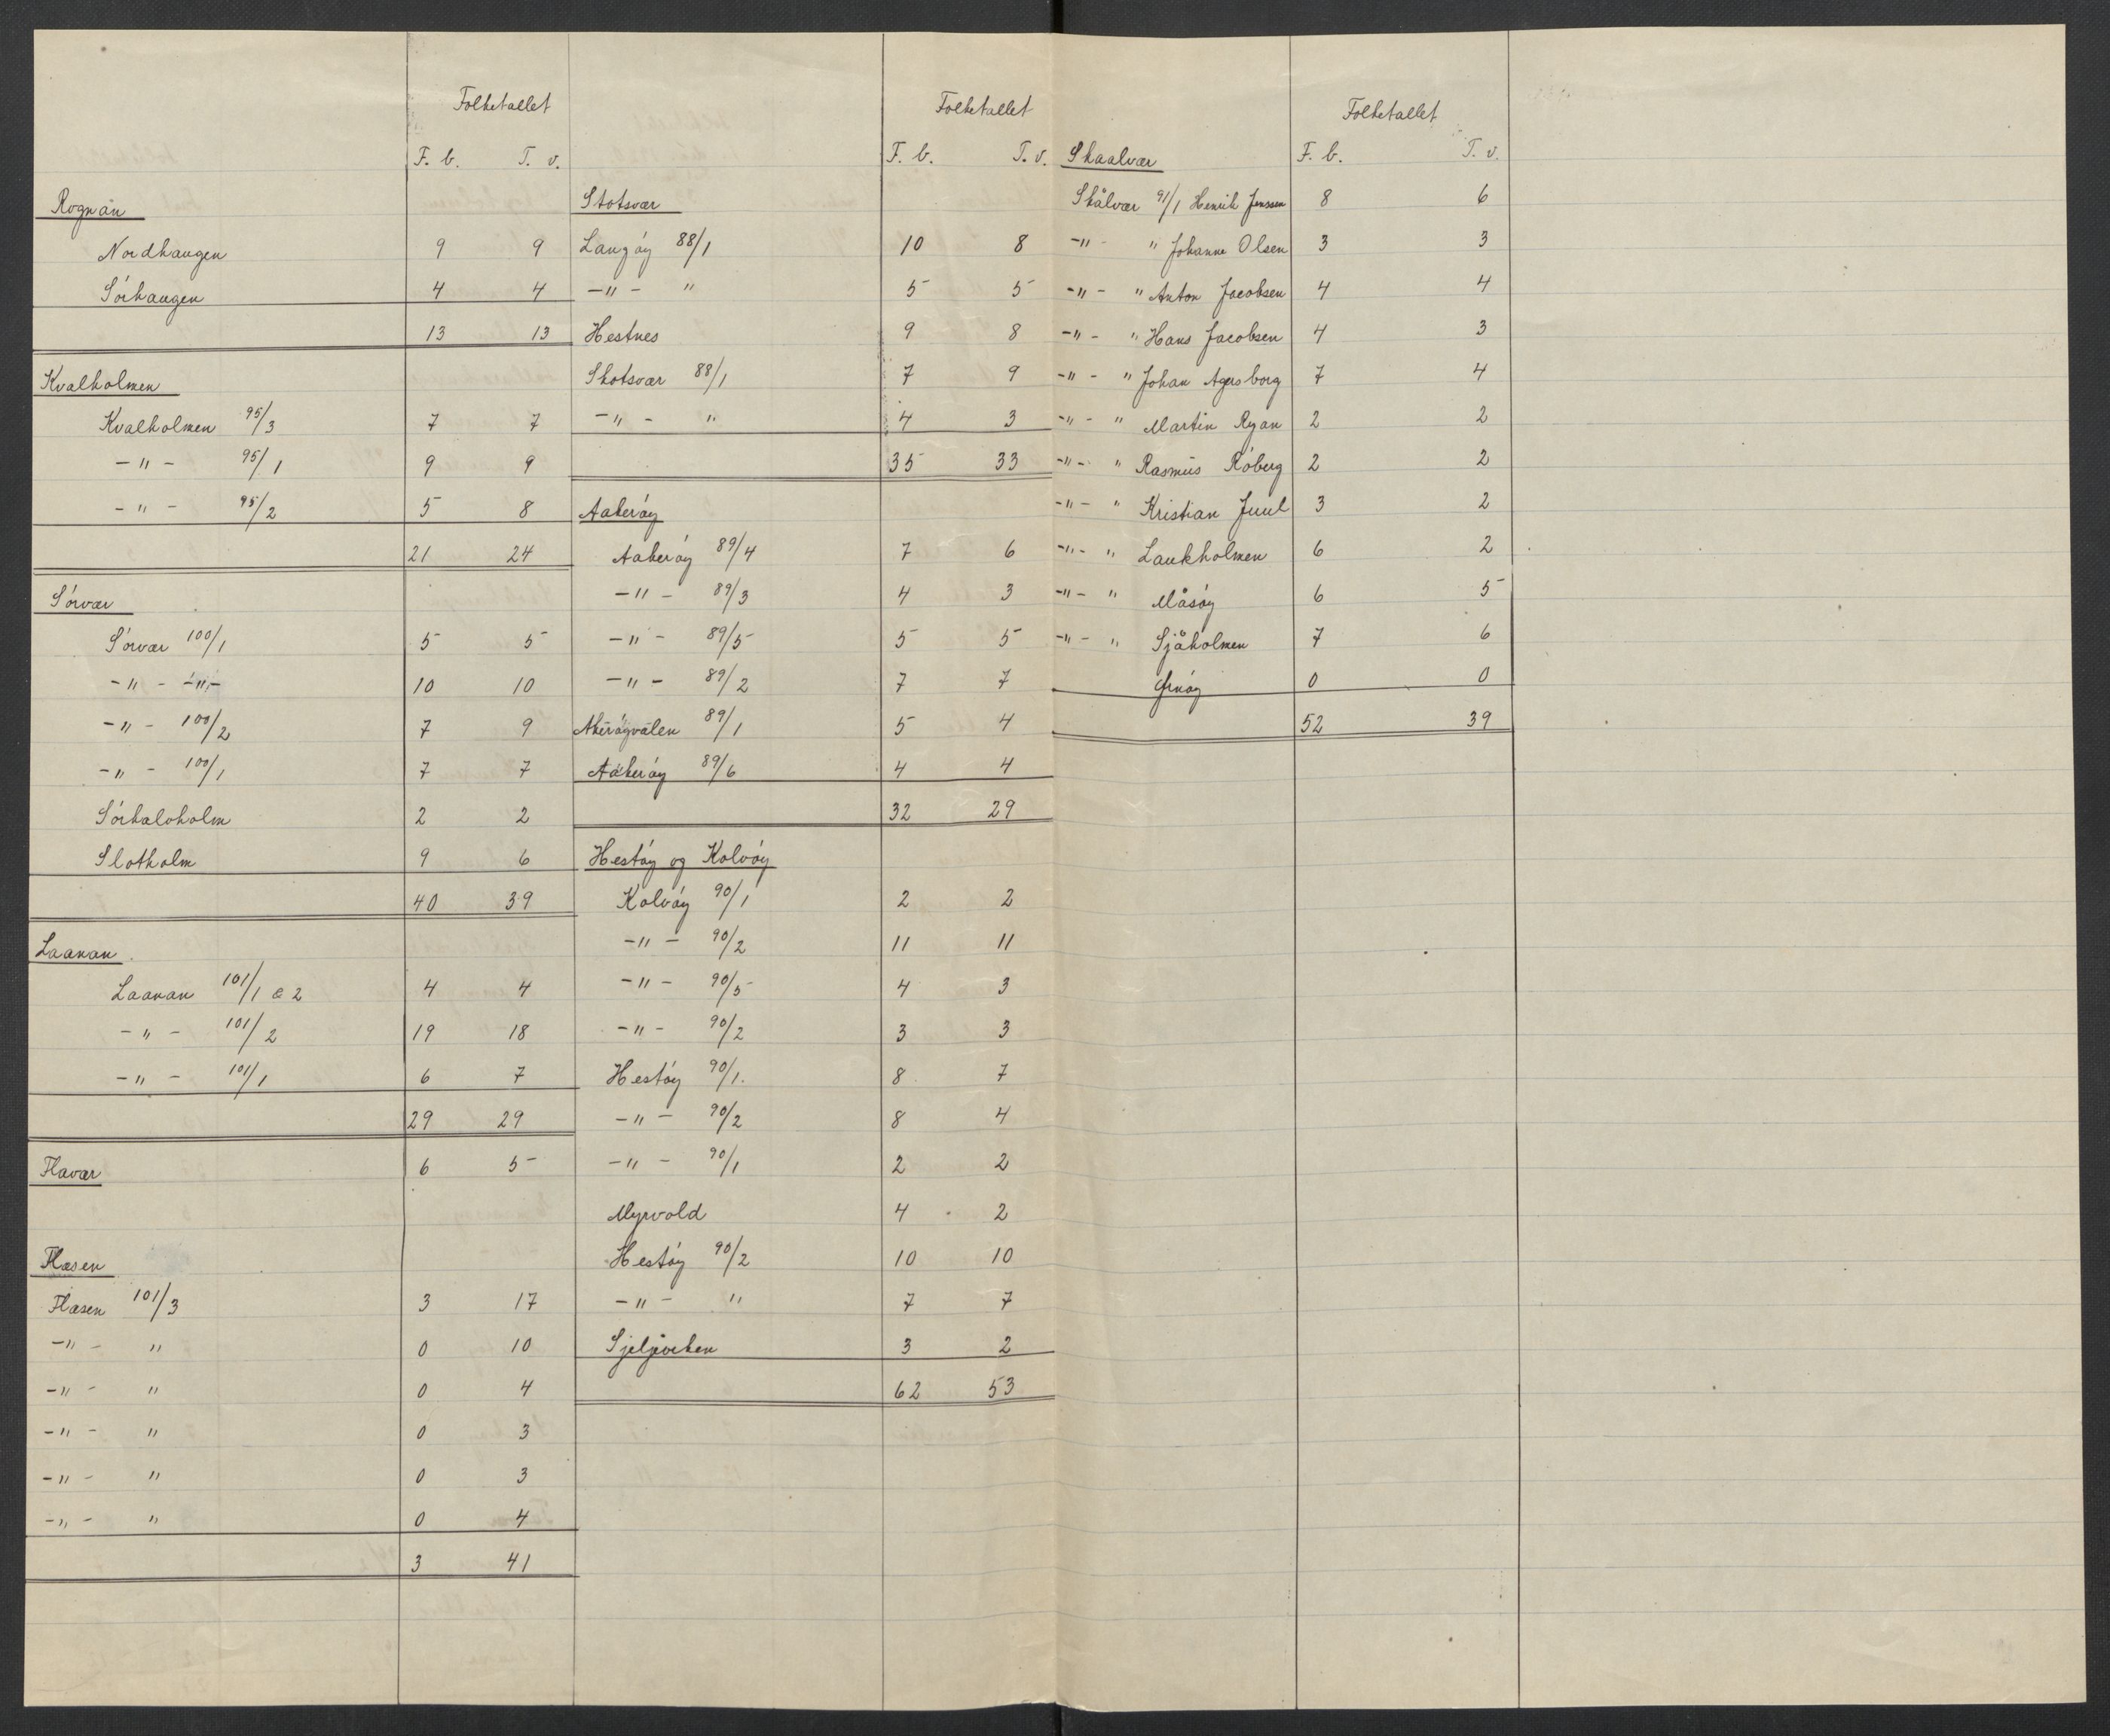 Folketallet
F. b. T. v.
Rognan
Nordhaugen 9 9
Sórhaugen 4 4
13 13
Kvalholmen
Kvalholmen 95/3 7 7
-"- 95/1 9 9
-"- 95/2 5 8
21 24
Sórvær
Sórvær 100/1 5 5
-"- -"- 10 10
-"- 100/2 7 9
-"- 100/1 7 7
Sórhalvholm 2 2
Slotholm 9 6
40 39
Laanan
Laanan 101/1 & 2 4 4
-"- 101/2 19 18
-"- 101/1 6 7
29 29
Flavær 6 5
Flæsen
Flæsen 101/3 3 17
-"- " 0 10
-"- " 0 4
-"- " 0 3
-"- " 0 3
-"- " 0 4
3 41
Folketallet
F. b. T. v.
Skotsvær
Langóy 88/1 10 8
-"- " 5 5
Hestnes 9 8
Skotsvær 88/1 7 9
-"- " 4 3
35 33
Aakeróy
Aakeróy 89/4 7 6
-"- 89/3 4 3
-"- 89/5 5 5
-"- 89/2 7 7
Akeróyvålen 89/1 5 4
Aakeróy 89/6 4 4
32 29
Hestóy og Kalvóy
Kalvóy 90/1 2 2
-"- 90/2 11 11
-"- 90/5 4 3
-"- 90/2 3 3
Hestóy 90/1. 8 7
-"- 90/2 8 4
-"- 90/1 2 2
Myrvold 4 2
Hestóy 90/2 10 10
-"- " 7 7
3 2
62 53
Folketallet
F. b. T. v.
Skaalvær
Skålvær 91/1 Henrik Jenssen 8 6
-"- " Johanne Olsen 3 3
-"- " Anton Jacobsen 4 4
-"- " Hans Jacobsen 4 3
-"- " Johan Agersborg 7 4
-"- " Martin Ryan 2 2
-"- " Rasmus Róberg 2 2
-"- " Kristian Juul 3 2
-"- " Laukholmen 6 2
-"- " Måsóy 6 5
-"- " Sjåholmen 7 6
0 0
52 39